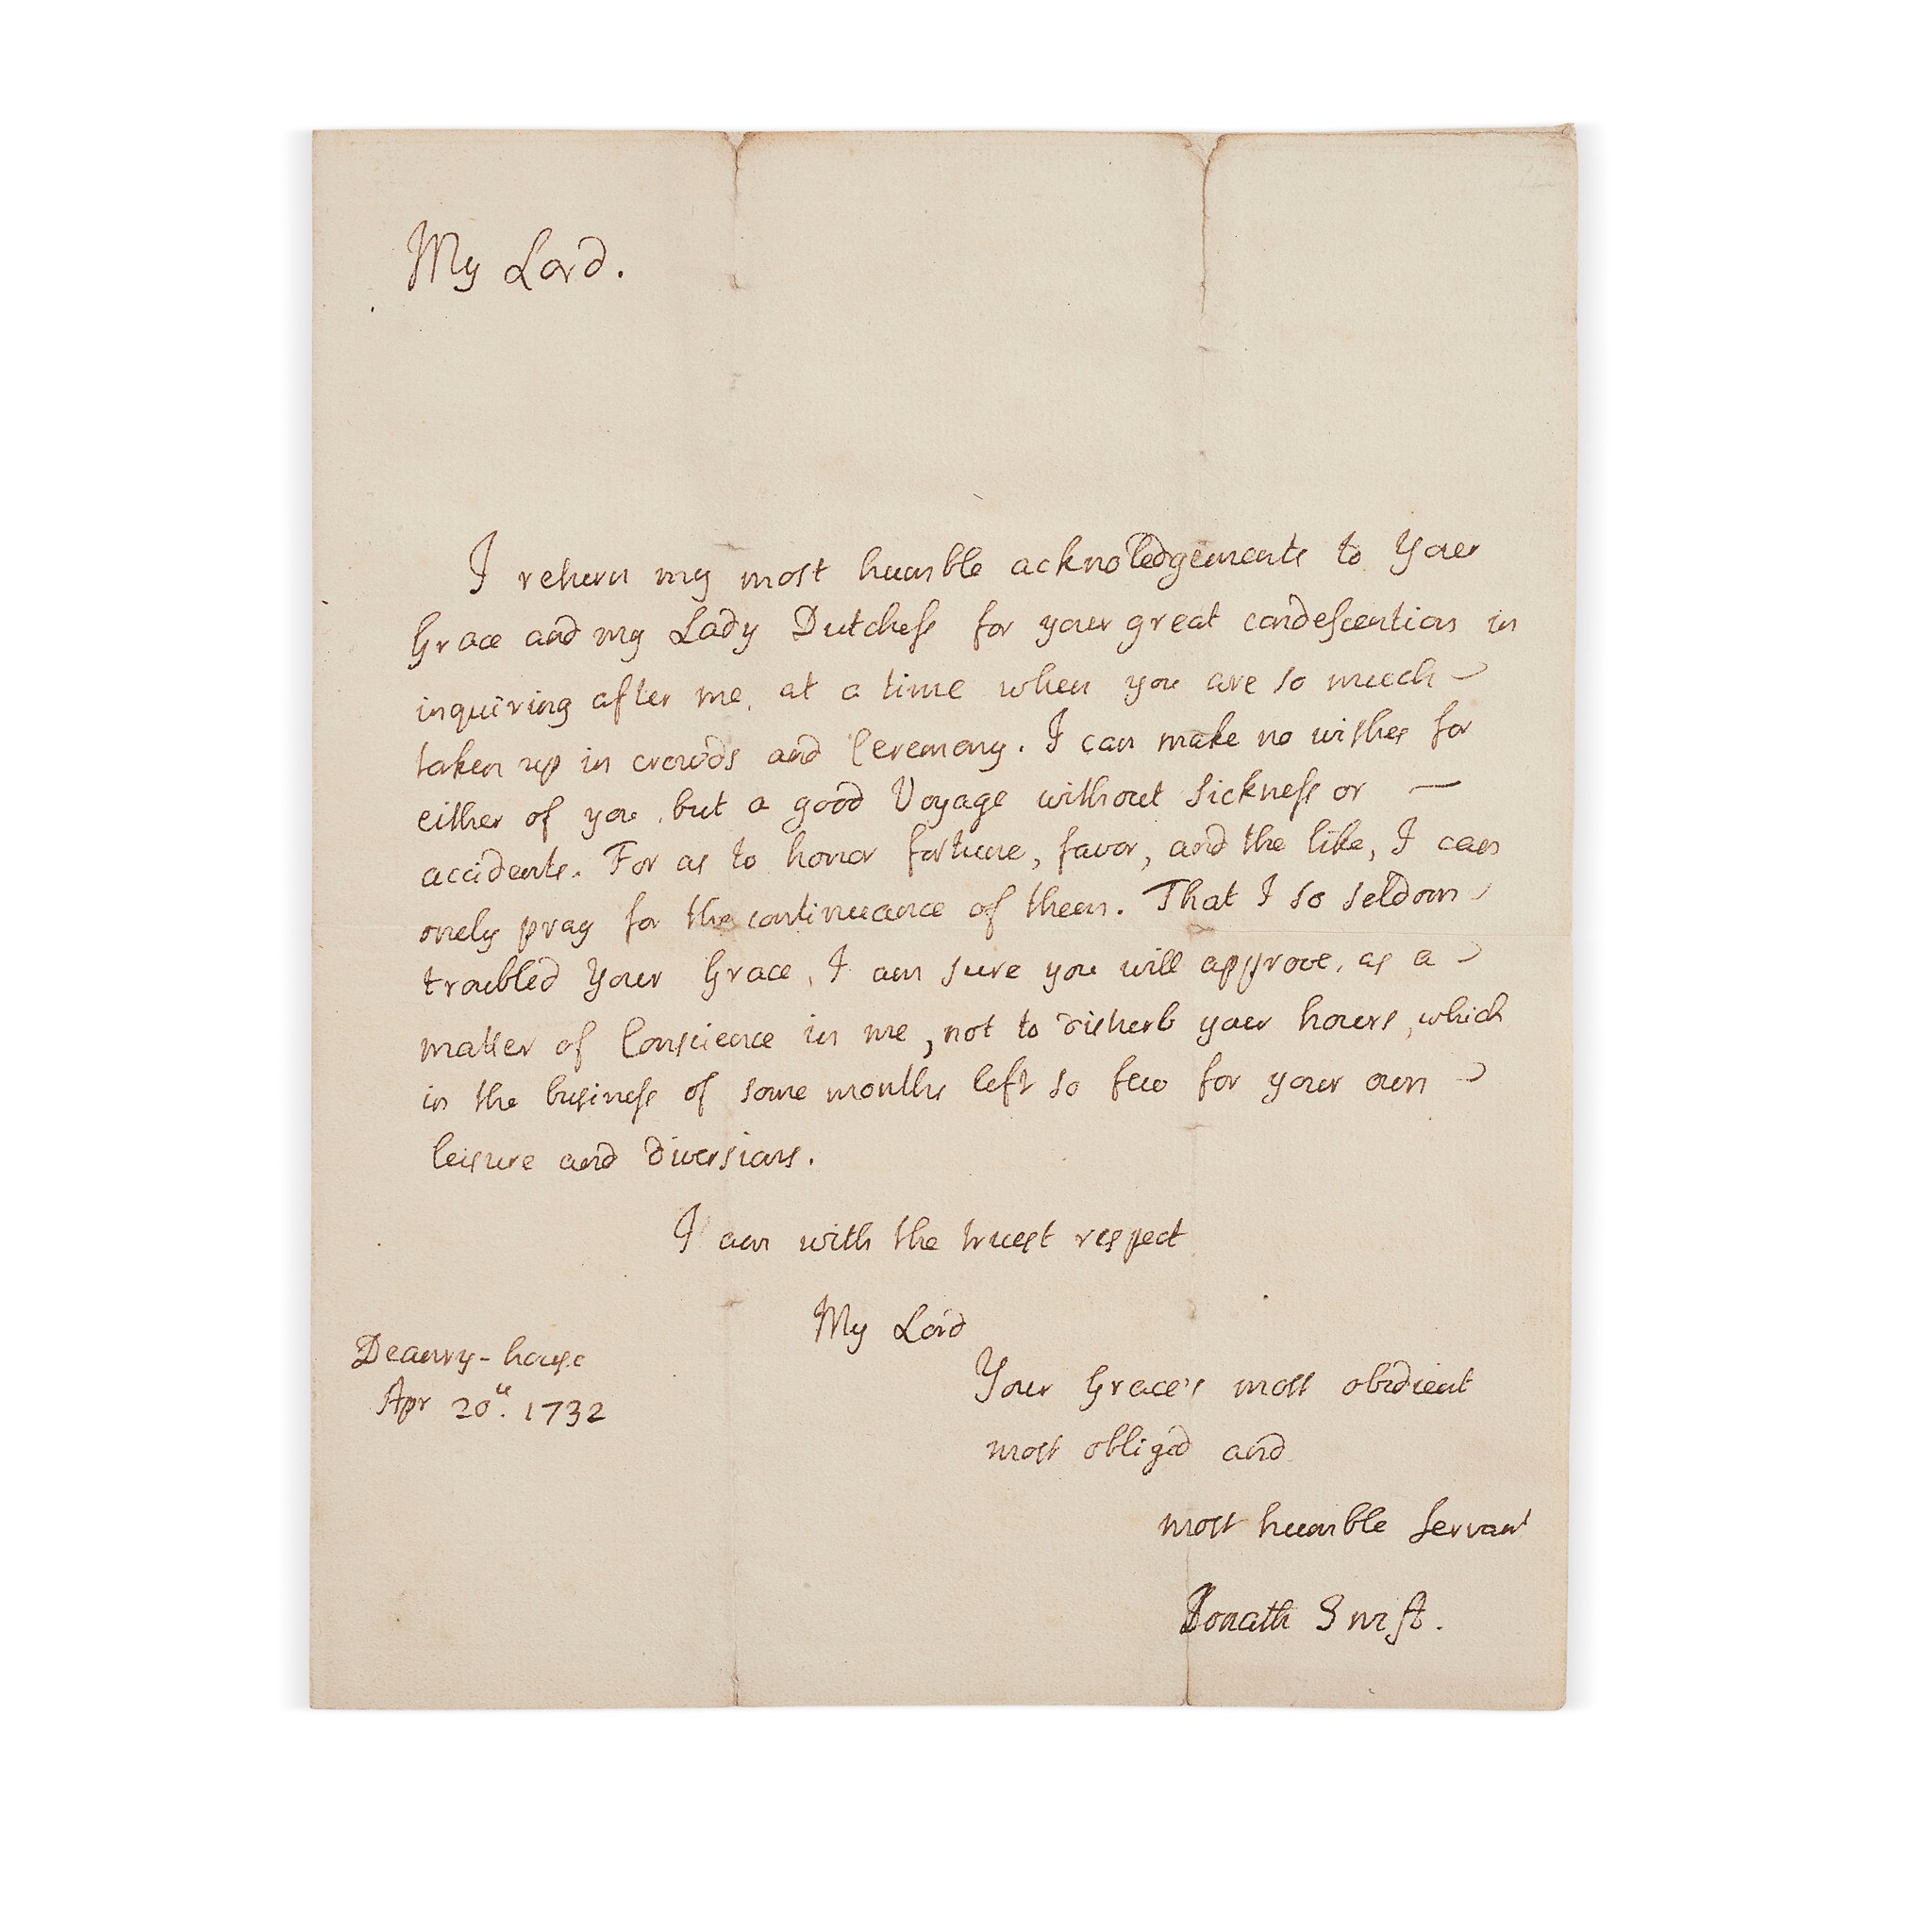 My Lord.
I return my most humble acknoledgements to Your
Grace and my Lady Dutchess for your great condescention in
inquiring after me, at a time when you are so much
taken up in crowds and Ceremony. I can make no wishes for
either of you, but a good Voyage without sickness or —
accidents. For as to honor fortune, favor, and the like, I can
onely pray for the continuance of them. That I so seldom
troubled Your Grace, I am sure you will approve, as a
matter of Conscience in me, not to disturb your hours, which
in the business of some months left so few for your own
leisure and diversions.
I am with the truest respect
My Lord
Your Grace's most obedient
most obliged and
most humble servant
Jonath Swift.
Deanry-house
Apr 20th. 1732